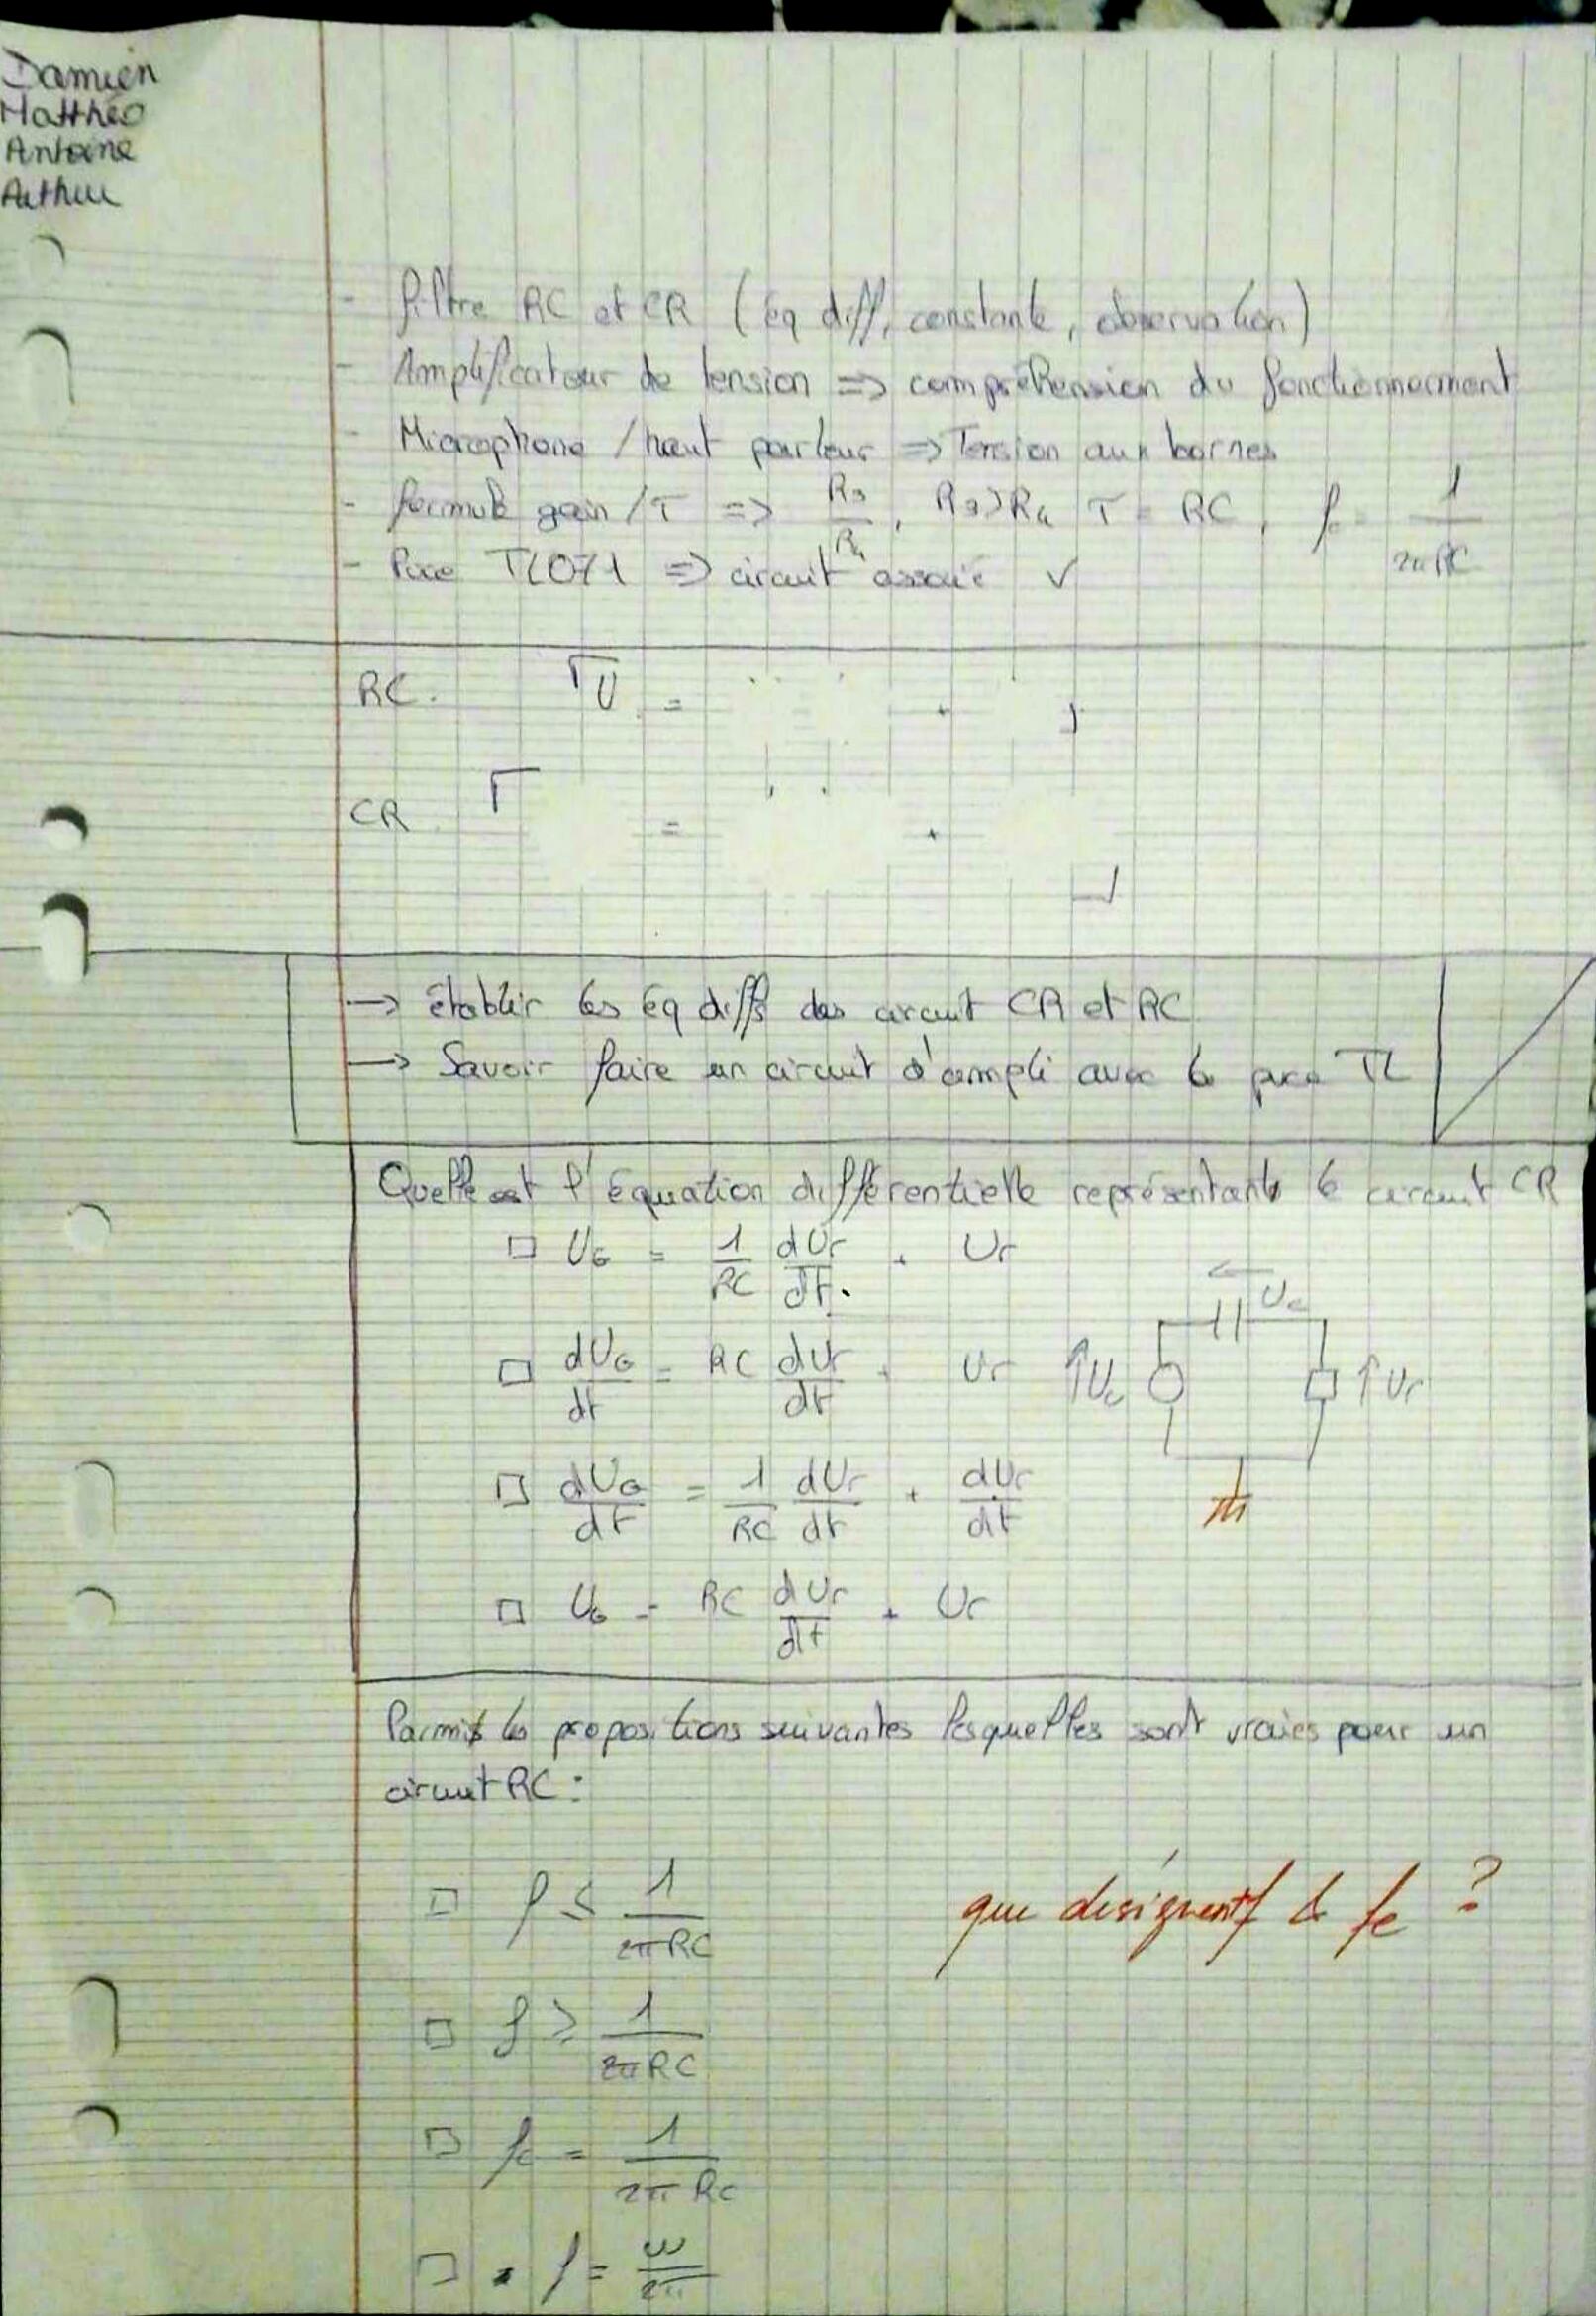 Damien
Matthéo
Antoine
Arthur
- filtre RC et CR (éq diff, constante, observation)
- Amplificateur de tension => compréhension du fonctionnement
- Microphone / haut parleur => Tension aux bornes
- formule gain / τ => R3/R4, R3>R4 τ = RC, fc = 1/2πRC
- Puce TL071 => circuit associé ✓
RC. U = +
CR = +
→ établir les éq diffs des circuit CR et RC
→ Savoir faire un circuit d'ampli avec la puce TL
Quelle est l'équation différentielle représentant le circuit CR
□ UG = 1/RC dUr/dt + Ur
Uc
□ dUG/dt = RC dUr/dt + Ur
↑UG ↑Ur
□ dUG/dt = 1/RC dUr/dt + dUr/dt
□ UG = RC dUr/dt + Ur
Parmis les propositions suivantes lesquelles sont vraies pour un
circuit RC :
□ f ≤ 1/2πRC
que désignent f & fc ?
□ f ≥ 1/2πRC
□ fc = 1/2πRC
□ f = ω/2π